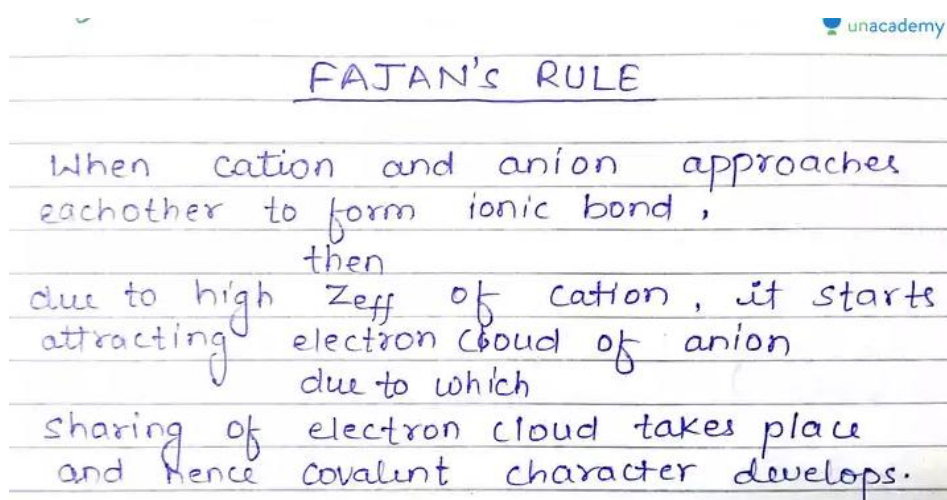 unacademy
FAJAN'S RULE
When cation and anion approaches
eachother to form ionic bond,
then
due to high Zeff of cation, it starts
attracting electron cloud of anion
due to which
sharing of electron cloud takes place
and hence covalent character develops.